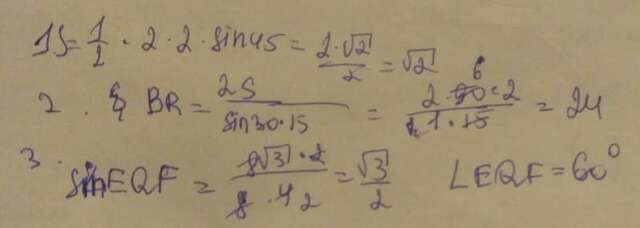 1 S = 1/2 · 2 · 2 · sin45 = 2·√2/2 = √2
2. BR = 2S/sin30·15 = 2·90·2/1·15 = 24
3. sin EQF = 8√3·2/8·42 = √3/2 LEQF = 60°